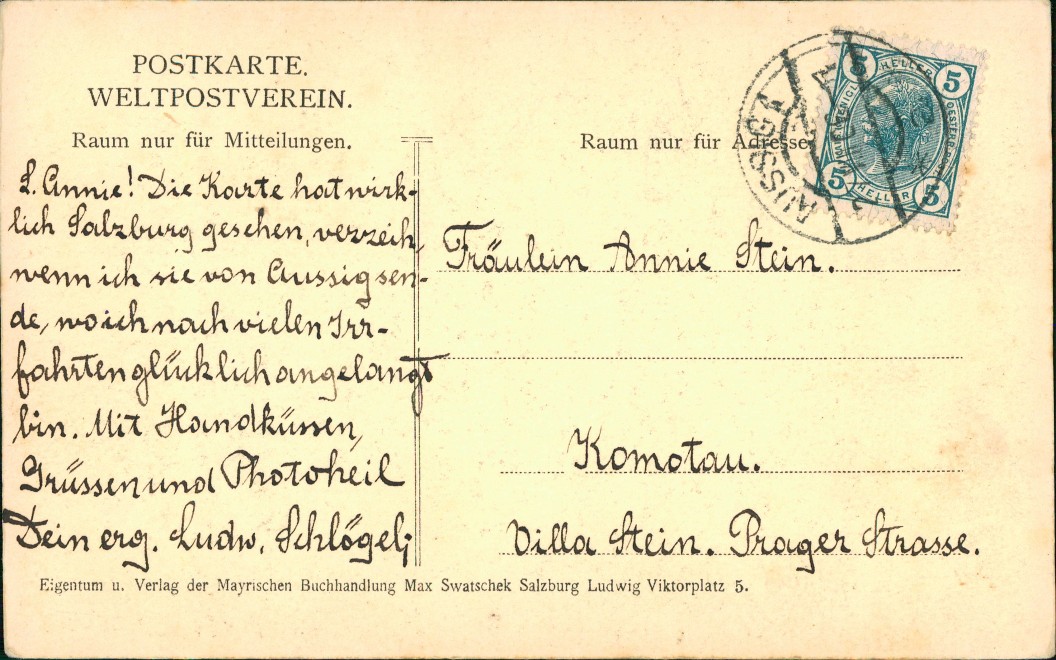 POSTKARTE.
WELTPOSTVEREIN.
Raum nur für Mitteilungen.
L. Annie! Die Karte hat wirk-
lich Salzburg gesehen, verzeih,
wenn ich sie von Aussig sen-
de, wo ich nach vielen Irr-
fahrten glücklich angelangt
bin. Mit Handküssen,
Grüssen und Photoheil
Dein erg. Ludw. Schlögel;
Raum nur für Adresse
5 HELLER 5
5 HELLER 5
AUSSIG 1
Fräulein Annie Stein.
Komotau.
Villa Stein. Prager Strasse.
Eigentum u. Verlag der Mayrischen Buchhandlung Max Swatschek Salzburg Ludwig Viktorplatz 5.